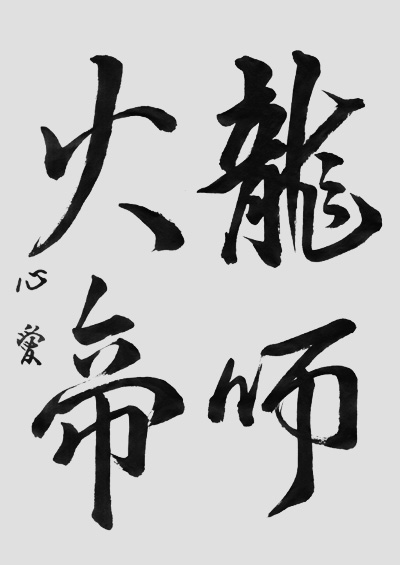 龍師
火帝
心愛